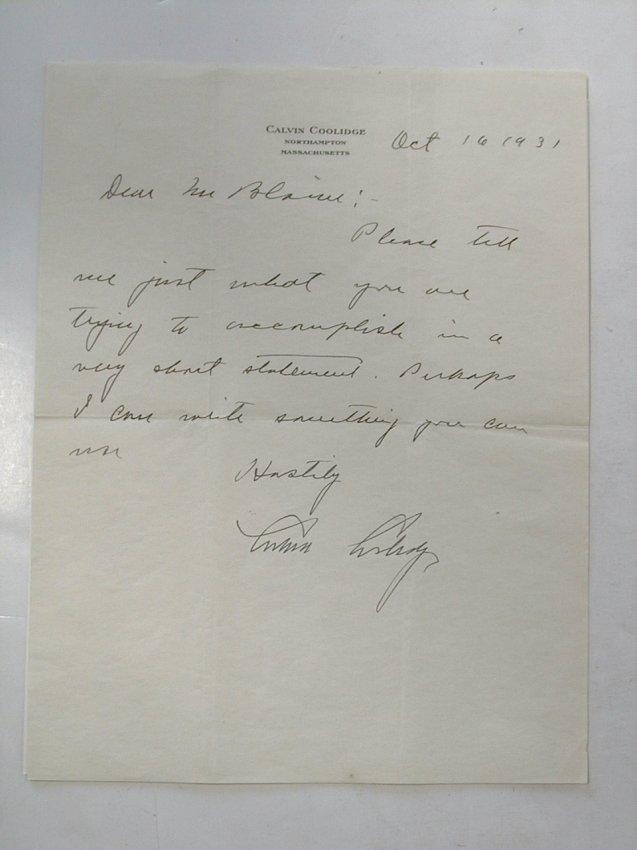 CALVIN COOLIDGE
NORTHAMPTON
MASSACHUSETTS
Oct 16 1931
Dear Mr Blaine:-
Please tell
me just what you are
trying to accomplish in a
very short statement. Perhaps
I can write something you can
use
Hastily
Calvin Coolidge